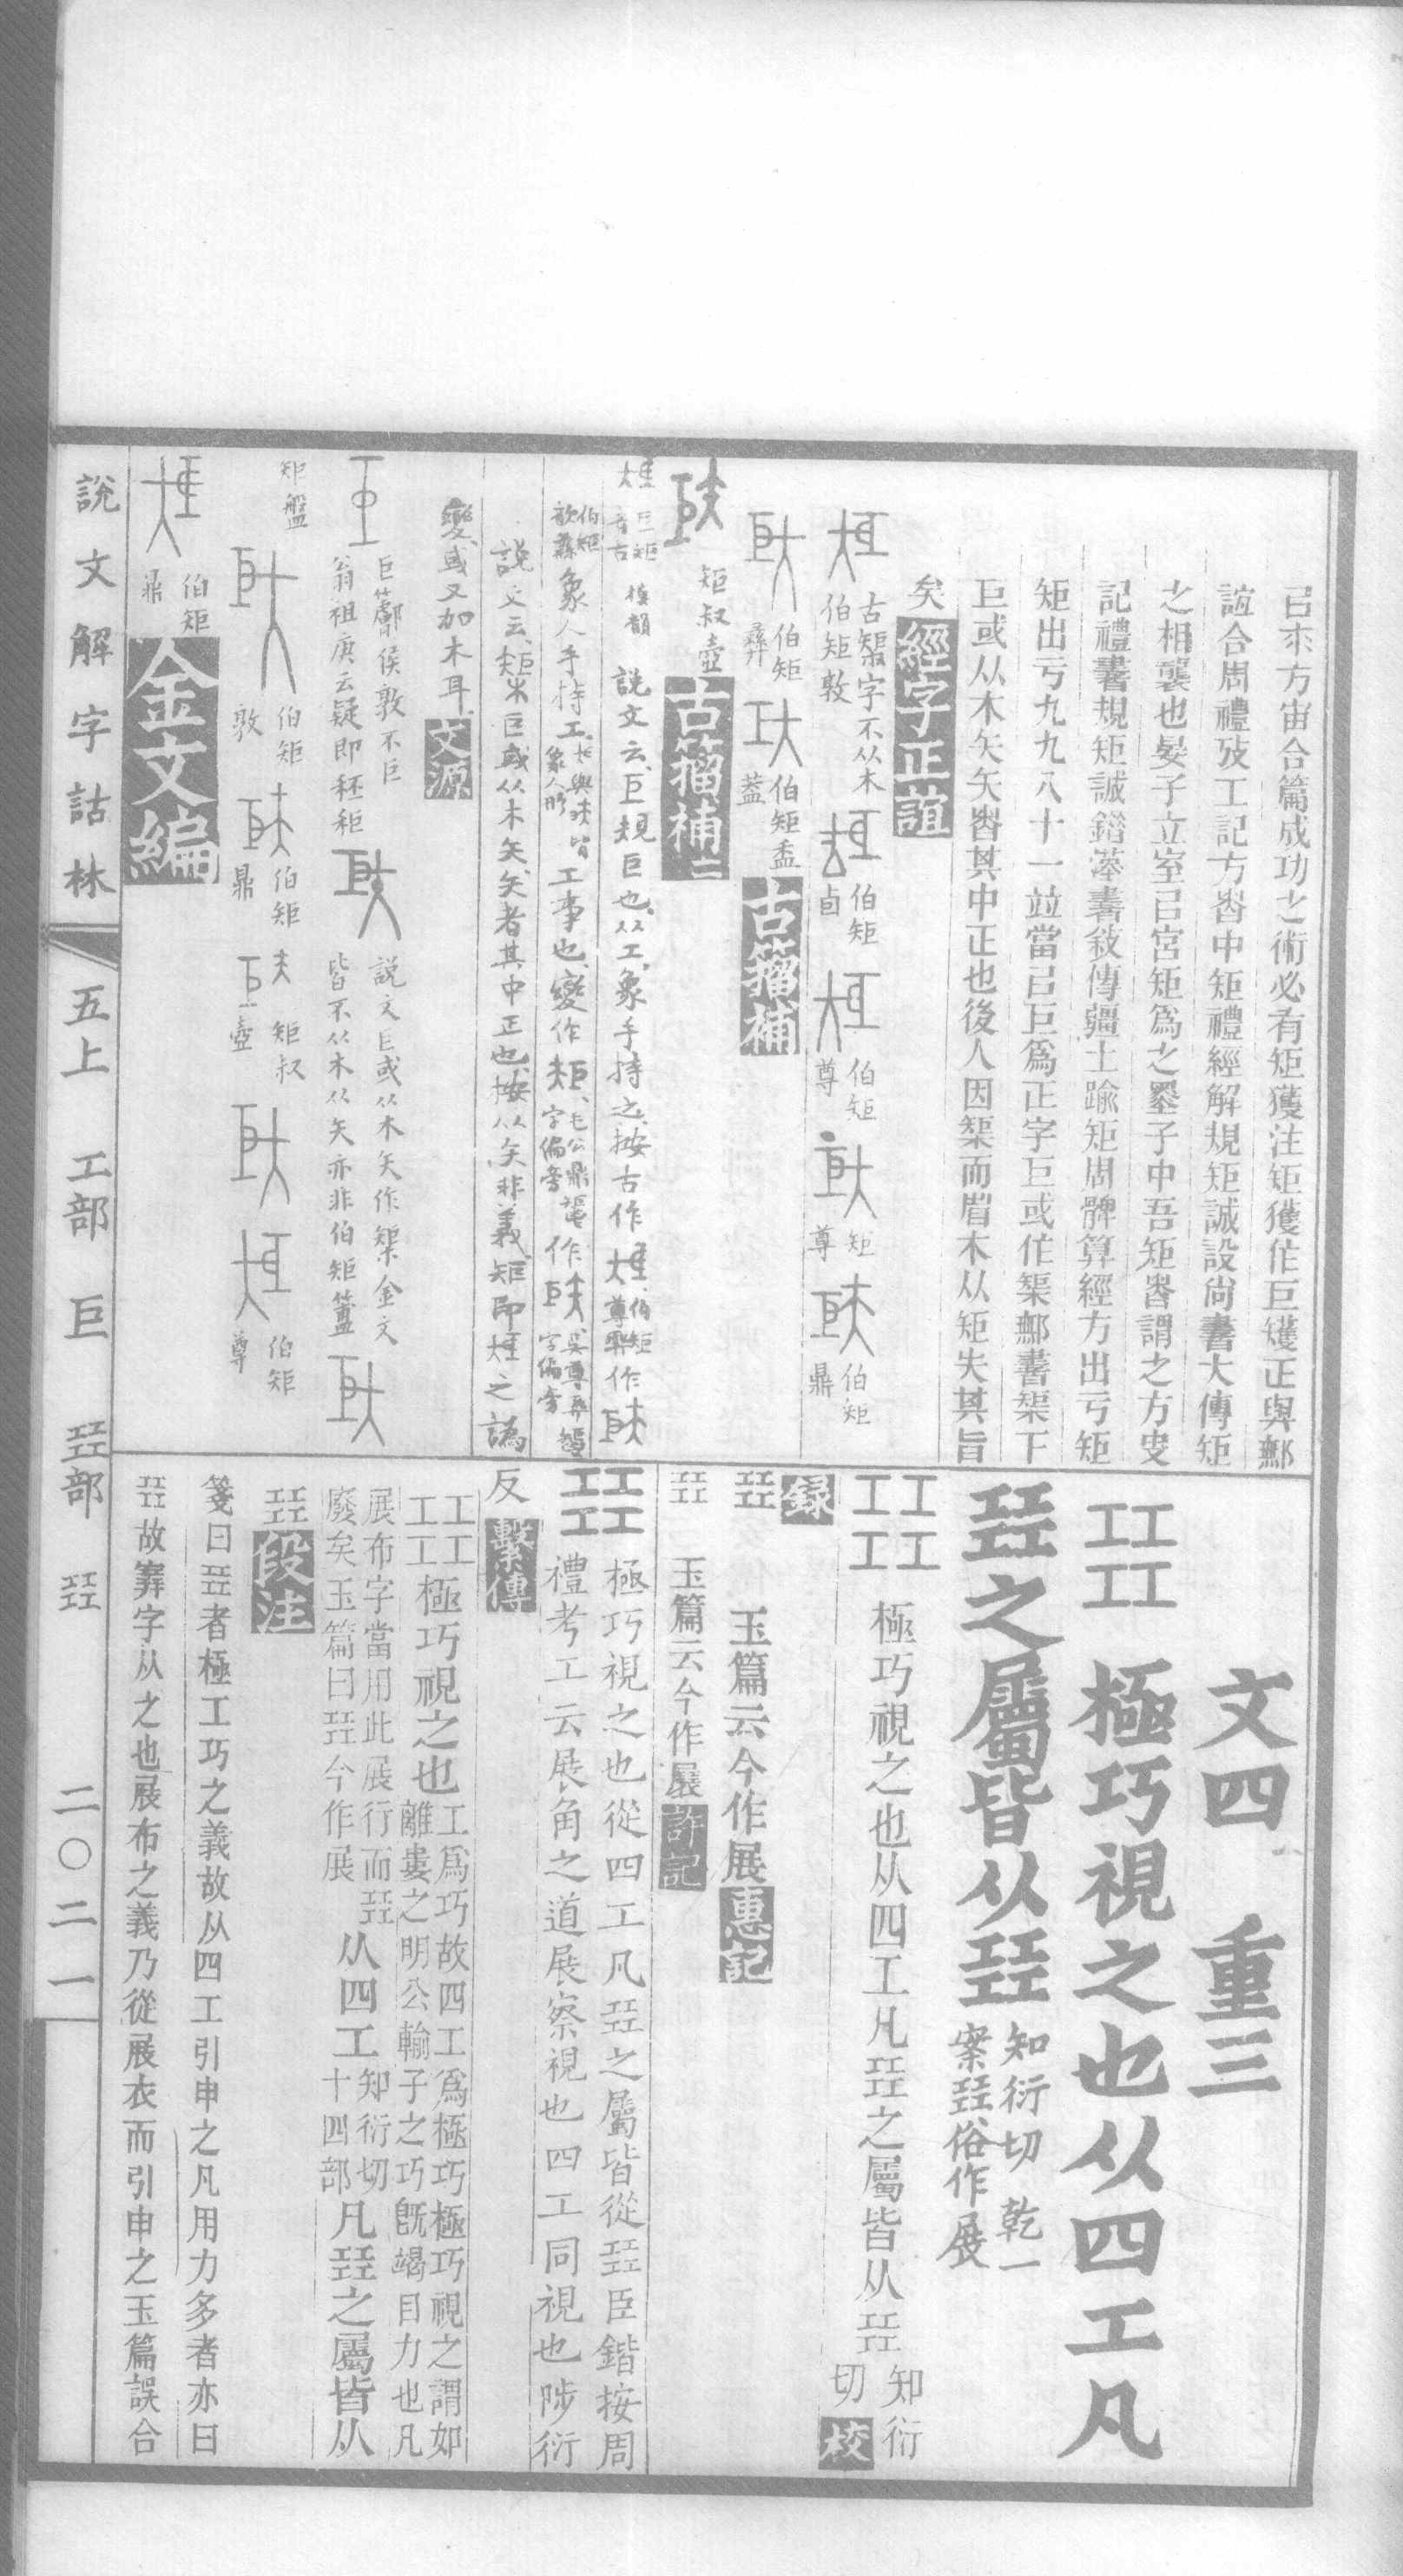 㠭㠭方宙合篇成功之術必有矩獲注矩獲作巨矱正與鄦
誼合周禮攷工記方者中矩禮經解規矩誠設尚書大傳矩
之相襲也晏子立室㠯宮矩爲之墨子中吾矩者謂之方史
記禮書規矩誠錯漢書敍傳疆土踰矩周髀算經方出于矩
矩出于九九八十一竝當㠯巨爲正字巨或作榘鄦書榘下
巨或从木矢矢者其中正也後人因榘而省木从矩失其旨
矣 經字正誼
古榘字不从木 伯矩敦 伯矩卣 伯矩尊 矩尊 伯矩鼎
伯矩彝 伯矩盉蓋 古籀補
矩叔壺 古籀補二
說文云巨規巨也从工象手持之按古作 伯矩尊彝 作
伯矩敦 象人手持工 與 皆象人形 工事也變作矩 毛公鼎 字偏旁 作 吳尊彝 字偏旁
說文云榘巨或从木矢矢者其中正也按从矢非義矩即 之譌
變或又加木耳 文源
巨 鄦侯敦不巨 翁祖庚云疑即秠秬 說文巨或从木矢作榘金文 皆不从木从矢亦非伯矩簠
矩盤 伯矩敦 伯矩鼎 矩叔壺 伯矩尊
伯矩鼎 金文編
文四 重三
㠭 極巧視之也从四工凡
㠭之屬皆从㠭 知衍切 乾一 案㠭俗作展
㠭 極巧視之也从四工凡㠭之屬皆从㠭 知衍切 校
錄
㠭 玉篇云今作展 惠記
㠭 玉篇云今作展 許記
㠭 極巧視之也從四工凡㠭之屬皆從㠭臣鍇按周
禮考工云展角之道展察視也四工同視也陟衍
反 繫傳
㠭 極巧視之也 工爲巧故四工爲極巧極巧視之謂如 離婁之明公輸子之巧旣竭目力也凡
展布字當用此展行而㠭 廢矣玉篇曰㠭今作展 从四工 知衍切 十四部 凡㠭之屬皆从
㠭 段注
箋曰㠭者極工巧之義故从四工引申之凡用力多者亦曰
㠭故𡫳字从之也展布之義乃從展衣而引申之玉篇誤合
說文解字詁林 五上 工部 巨 㠭部 㠭 二〇二一